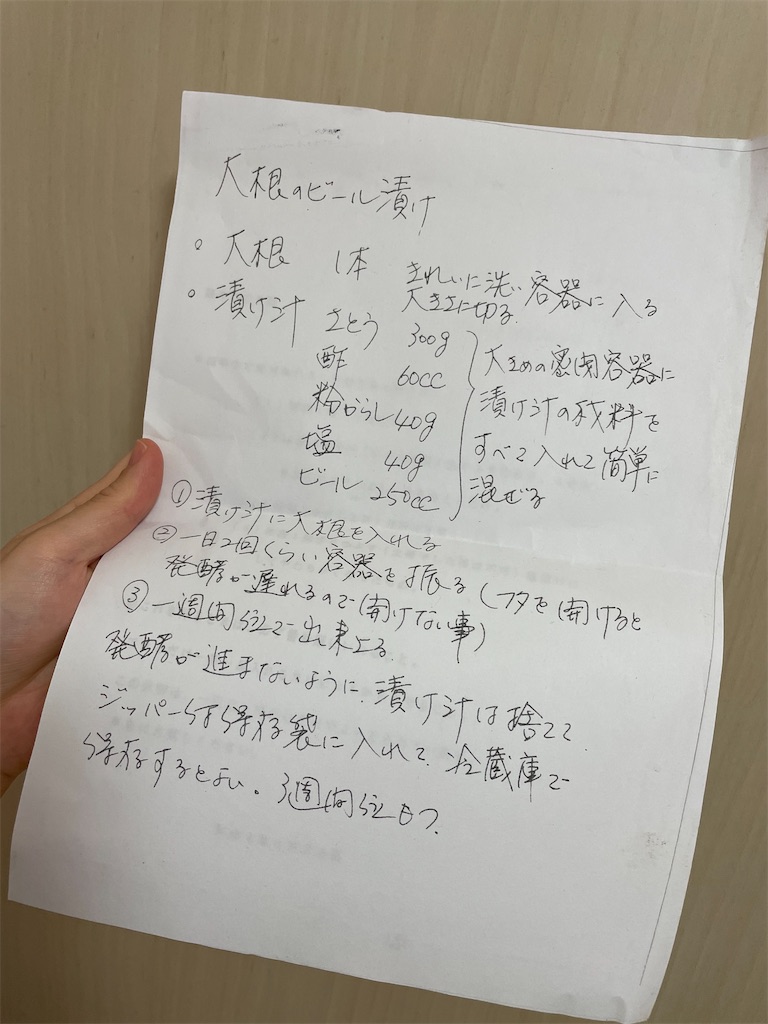 大根のビール漬け
○ 大根 1本 きれいに洗い容器に入る
大きさに切る
○ 漬け汁 さとう 300g
酢 60cc
粉からし 40g
塩 40g
ビール 250cc
大きめの密閉容器に
漬け汁の材料を
すべて入れて簡単に
混ぜる
① 漬け汁に大根を入れる
② 一日2回くらい容器を振る(フタを開けると
発酵が遅れるので開けない事)
③ 一週間位で出来上る
発酵が進まないように、漬け汁は捨てて
ジッパー付き保存袋に入れて、冷蔵庫で
保存するとよい。3週間位もつ